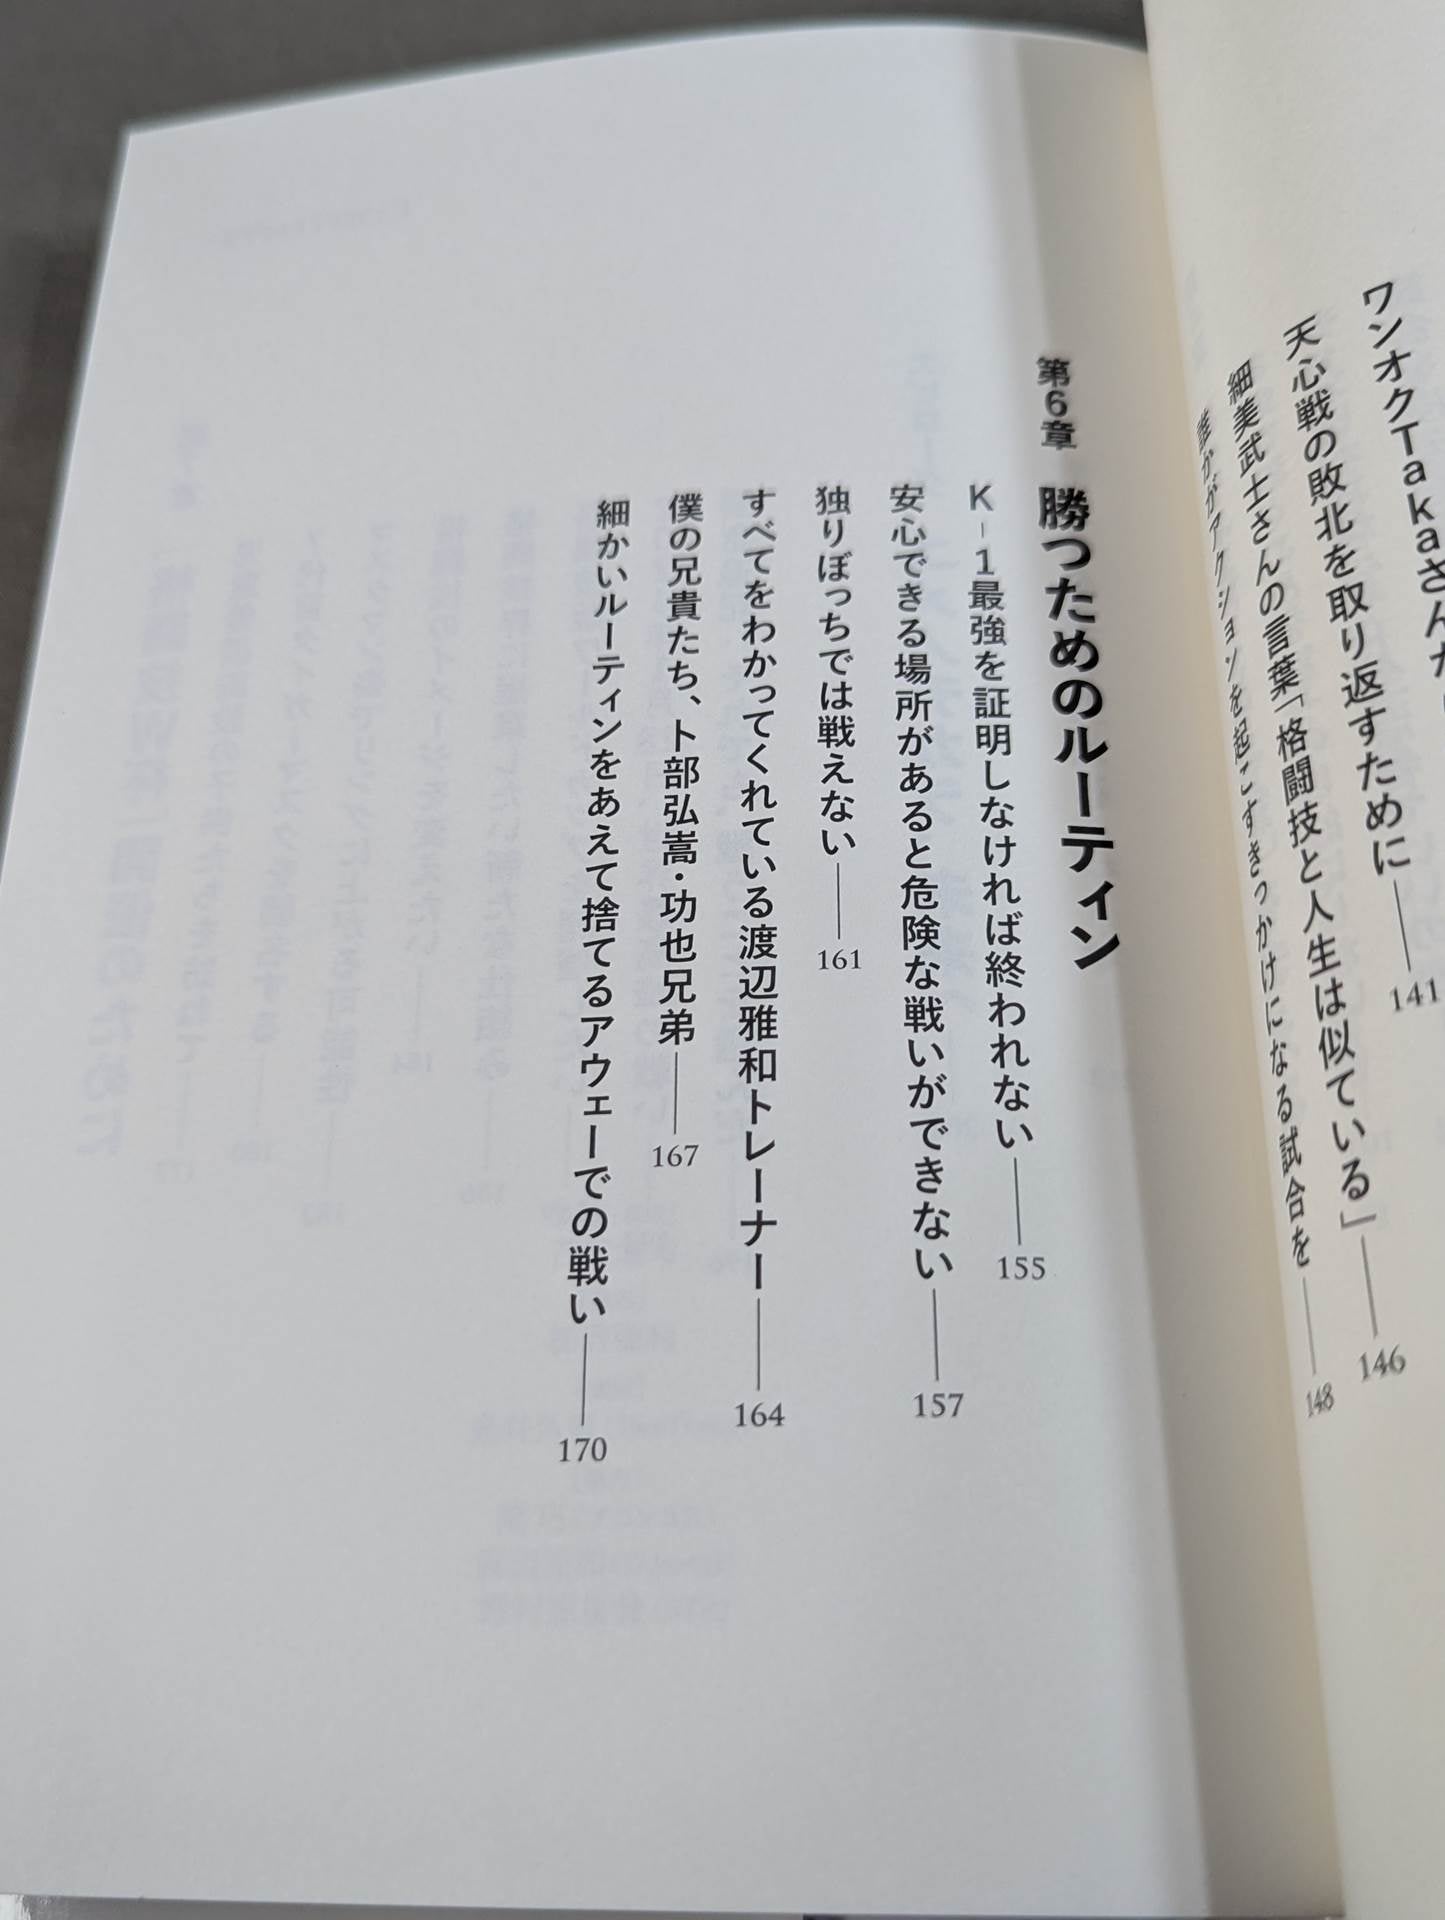 ワンオクTakaさんが
天心戦の敗北を取り返すために――141
細美武士さんの言葉「格闘技と人生は似ている」――146
誰かがアクションを起こすきっかけになる試合を――148
第6章 勝つためのルーティン
K-1最強を証明しなければ終われない――155
安心できる場所があると危険な戦いができない――157
独りぼっちでは戦えない――161
すべてをわかってくれている渡辺雅和トレーナー――164
僕の兄貴たち、卜部弘嵩・功也兄弟――167
細かいルーティンをあえて捨てるアウェーでの戦い――170